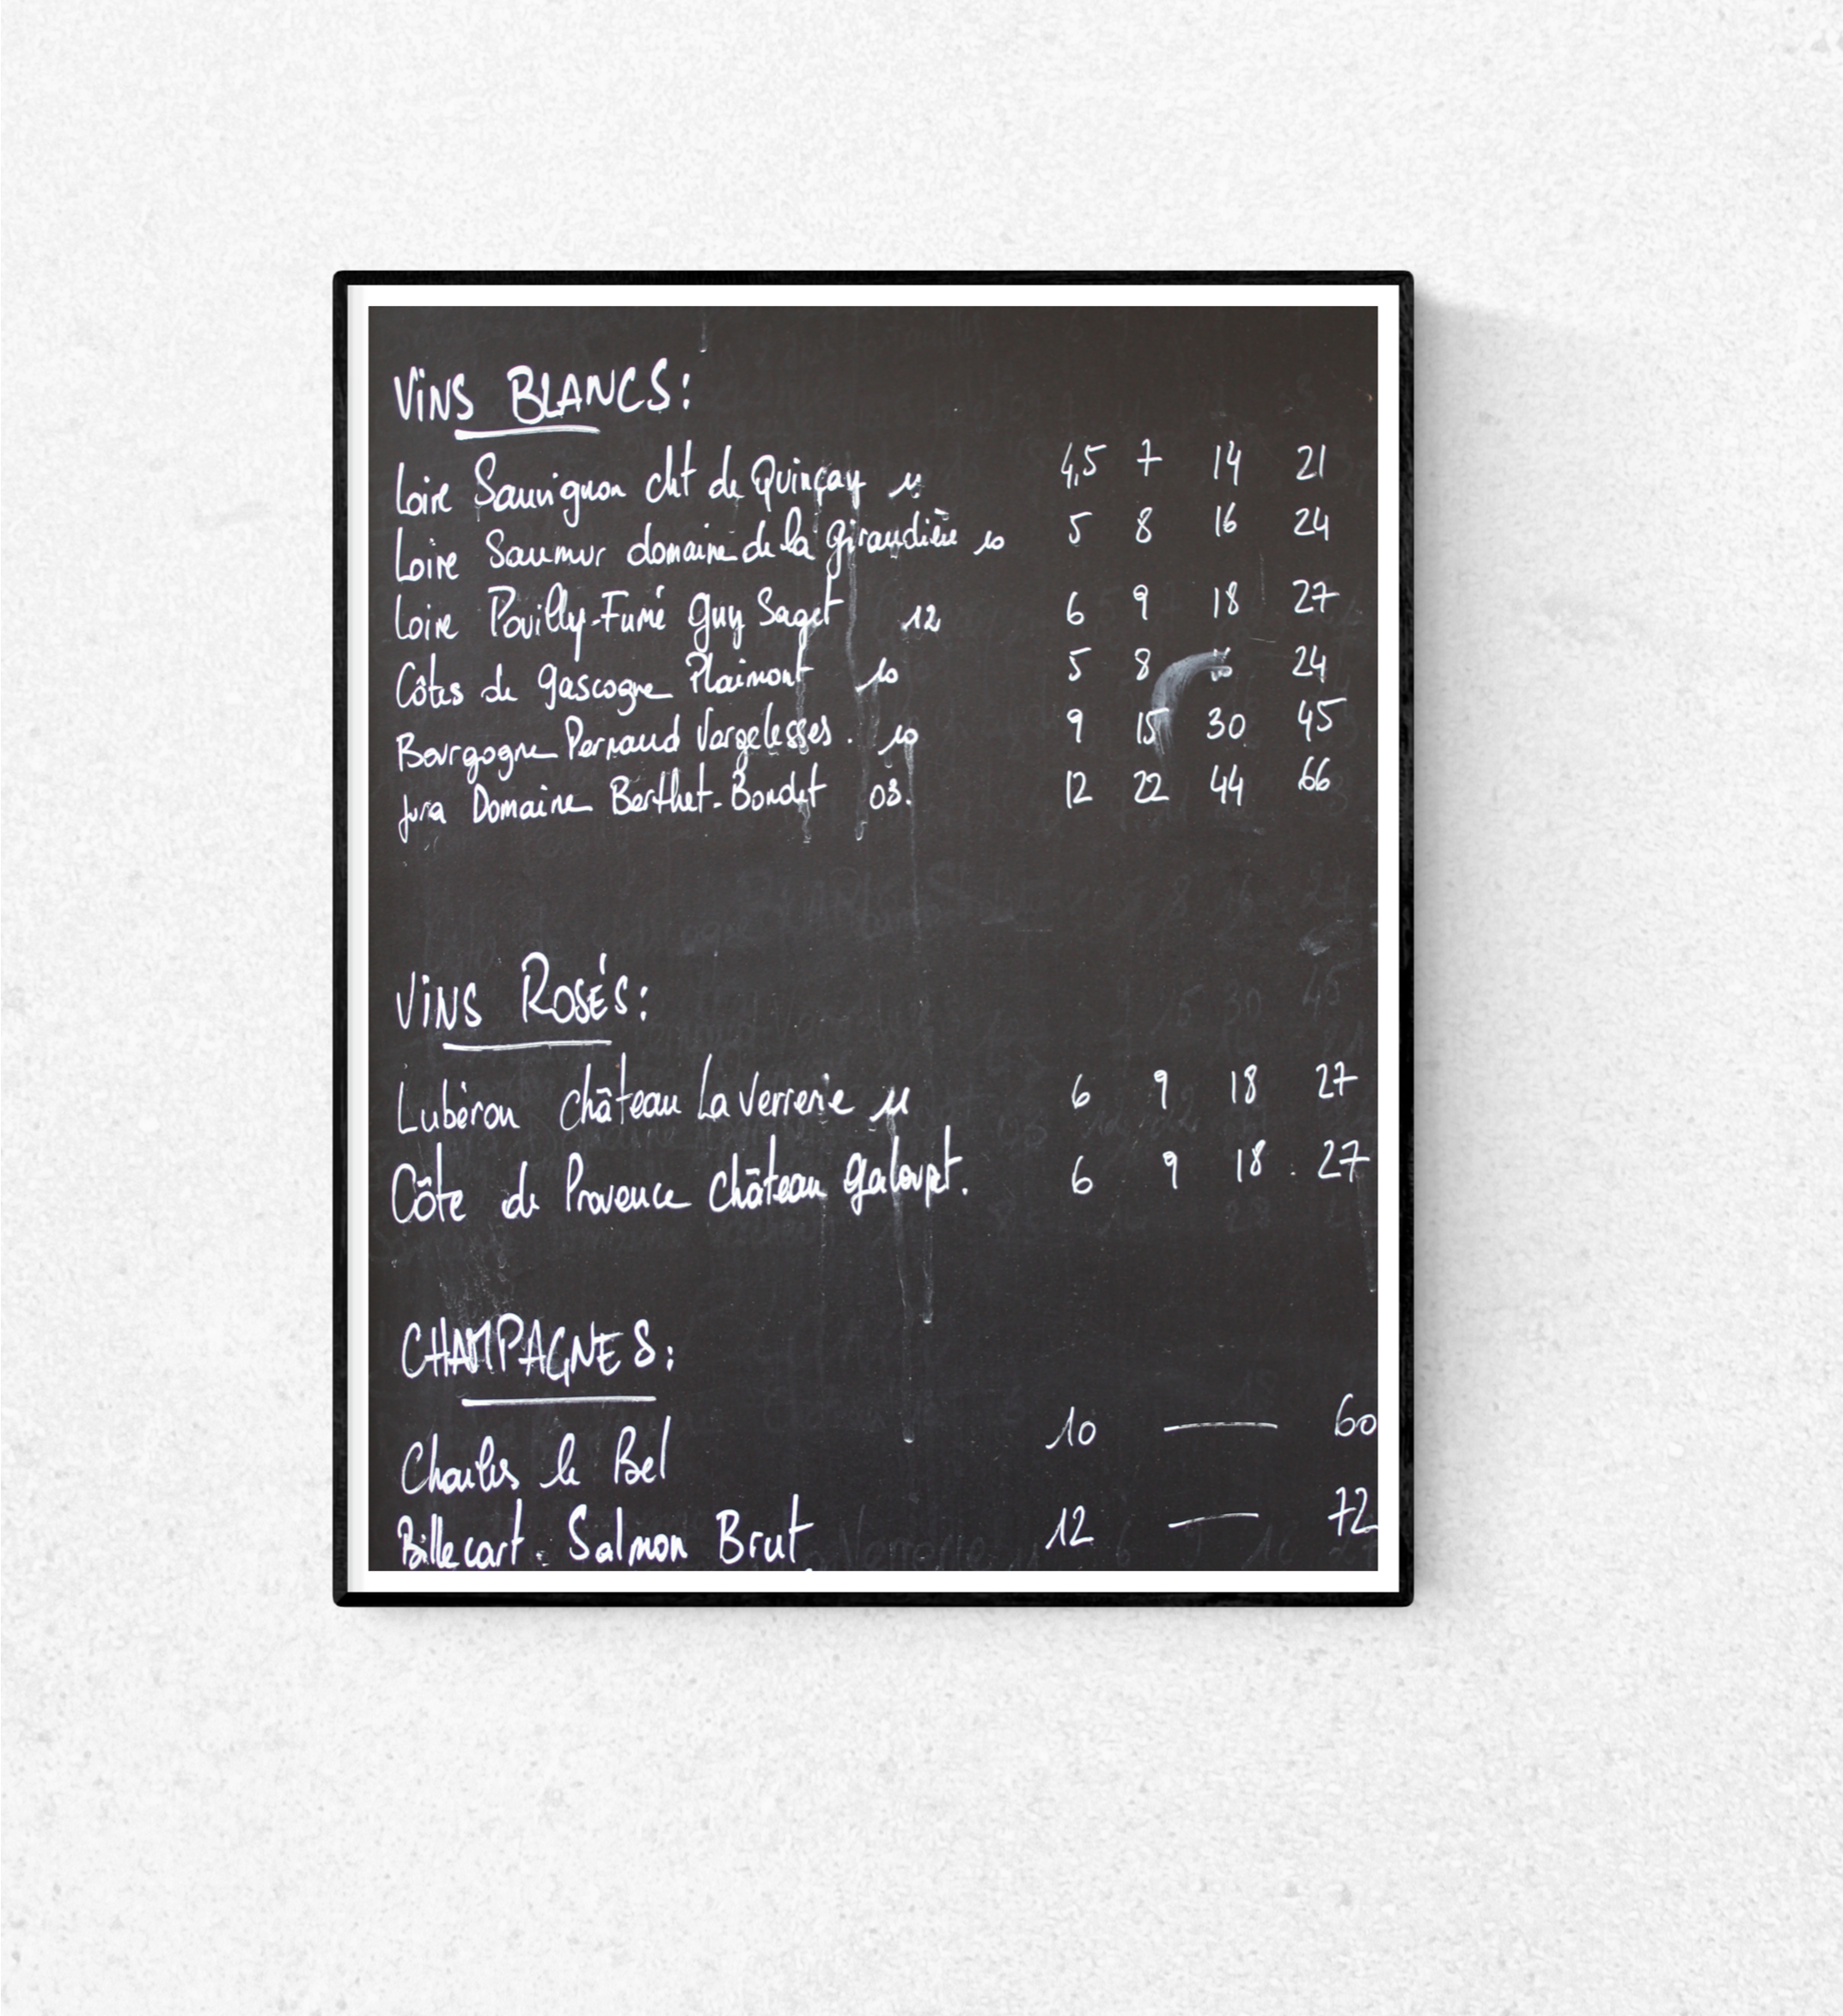 ViNS BLANCS:
Loire Sauvignon cht de Quinçay 11 4,5 7 14 21
Loire Saumur domaine de la Giraudière 10 5 8 16 24
Loire Pouilly-Fumé Guy Saget 12 6 9 18 27
Côtes de Gascogne Plaimont 10 5 8 24
Bourgogne Pernaud Vergelesses. 10 9 15 30 45
Jura Domaine Berthet-Bondet 03. 12 22 44 66
ViNS ROSÉS:
Lubéron Château La Verrerie 11 6 9 18 27
Côte de Provence Château Galoupet. 6 9 18. 27
CHAMPAGNES:
Charles le Bel 10 — 60
Billecart. Salmon Brut 12 — 72